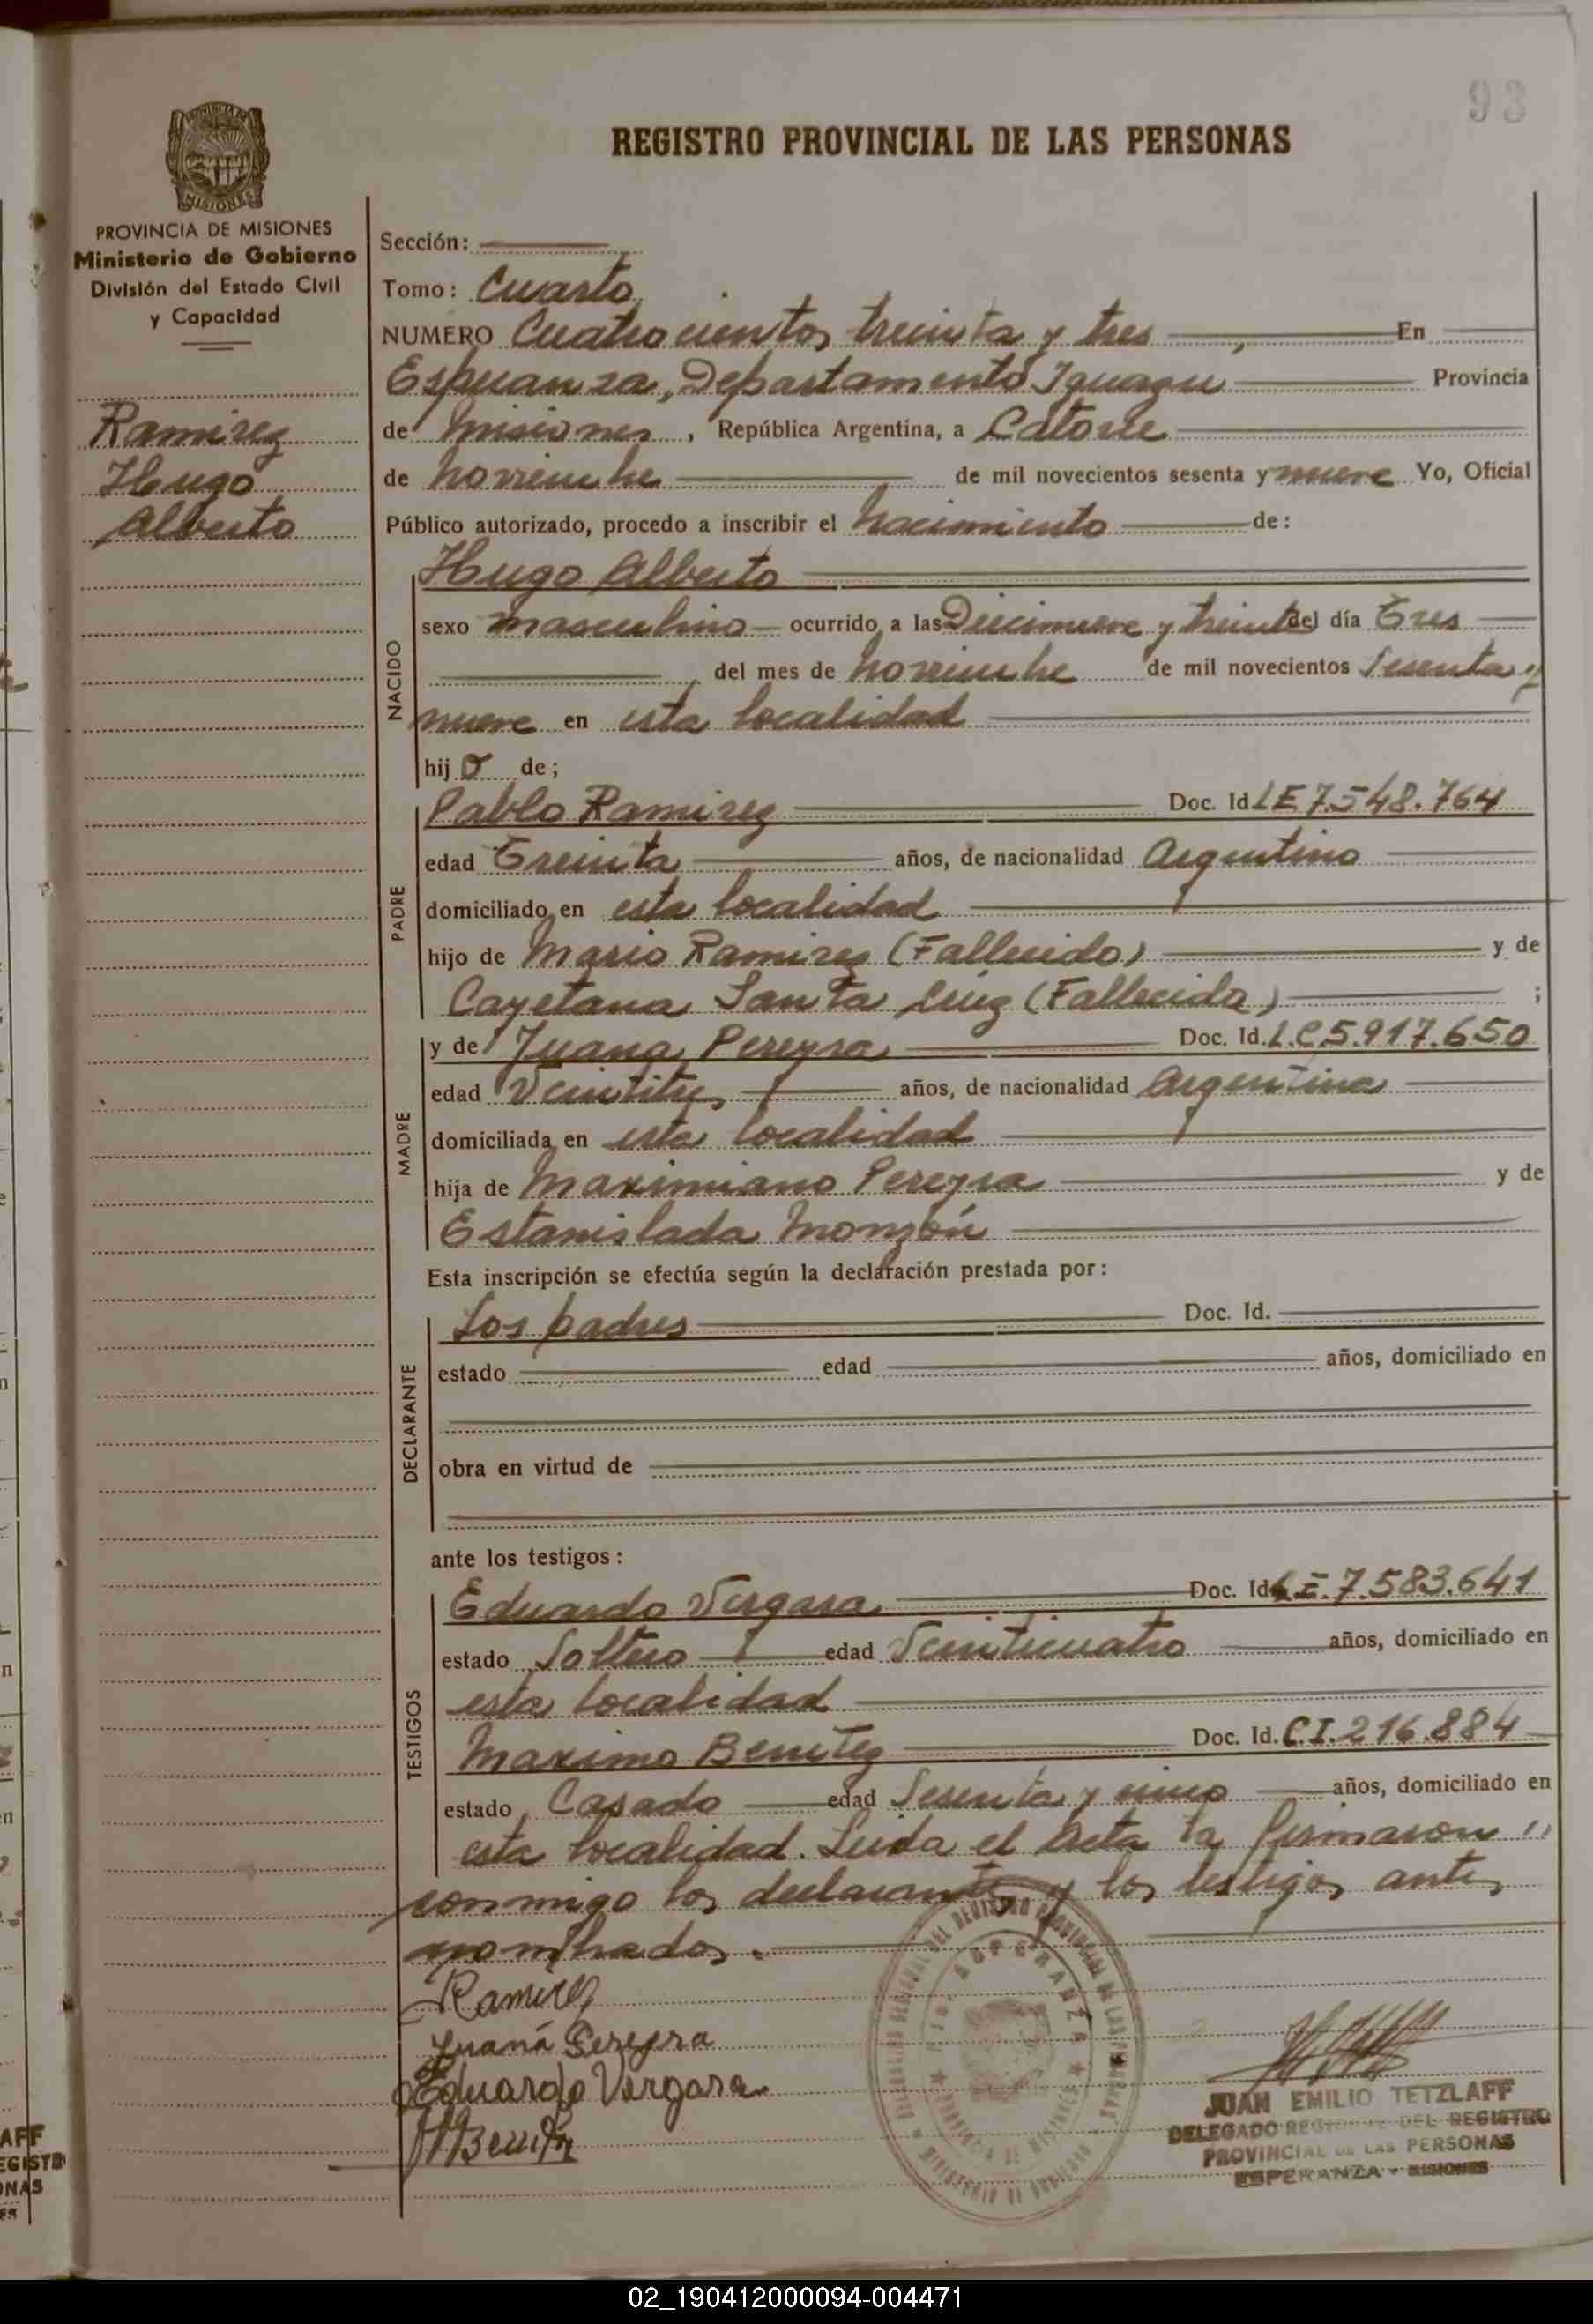 93
REGISTRO PROVINCIAL DE LAS PERSONAS
PROVINCIA DE MISIONES
MISIONES
PROVINCIA DE MISIONES
Ministerio de Gobierno
División del Estado Civil
y Capacidad
Ramirez
Hugo
Alberto
Sección:
Tomo: Cuarto
NUMERO Cuatrocientos treinta y tres En
Esperanza, Departamento Iguazu Provincia
de Misiones, República Argentina, a Catorce
de Noviembre de mil novecientos sesenta y nueve Yo, Oficial
Público autorizado, procedo a inscribir el Nacimiento de:
NACIDO
Hugo Alberto
sexo masculino ocurrido a las Diecinueve y treinta del día Tres
del mes de Noviembre de mil novecientos Sesenta y
nueve en esta localidad
hijo de;
PADRE
Pablo Ramirez Doc. Id. LE 7.548.764
edad Treinta años, de nacionalidad Argentino
domiciliado en esta localidad
hijo de Mario Ramirez (Fallecido) y de
Cayetana Santa Cruz (Fallecida) ;
MADRE
y de Juana Pereyra Doc. Id. L.C.5.917.650
edad Veintitres años, de nacionalidad Argentina
domiciliada en esta localidad
hija de Maximiano Pereyra y de
Estanislada Monzón
Esta inscripción se efectúa según la declaración prestada por:
DECLARANTE
Los padres Doc. Id.
estado edad años, domiciliado en
obra en virtud de
ante los testigos:
TESTIGOS
Eduardo Vergara Doc. Id. L.E. 7.583.641
estado Soltero edad Veinticuatro años, domiciliado en
esta localidad
Maximo Benitez Doc. Id. C.I.216.884
estado Casado edad Sesenta y cinco años, domiciliado en
esta localidad. Leida el Acta la firmaron
conmigo los declarantes y los testigos antes
nombrados.
Ramirez
Juana Pereyra
Eduardo Vergara
MBenitez
ESPERANZA
JUAN EMILIO TETZLAFF
DELEGADO REGIONAL DEL REGISTRO
PROVINCIAL DE LAS PERSONAS
ESPERANZA - MISIONES
02_190412000094-004471